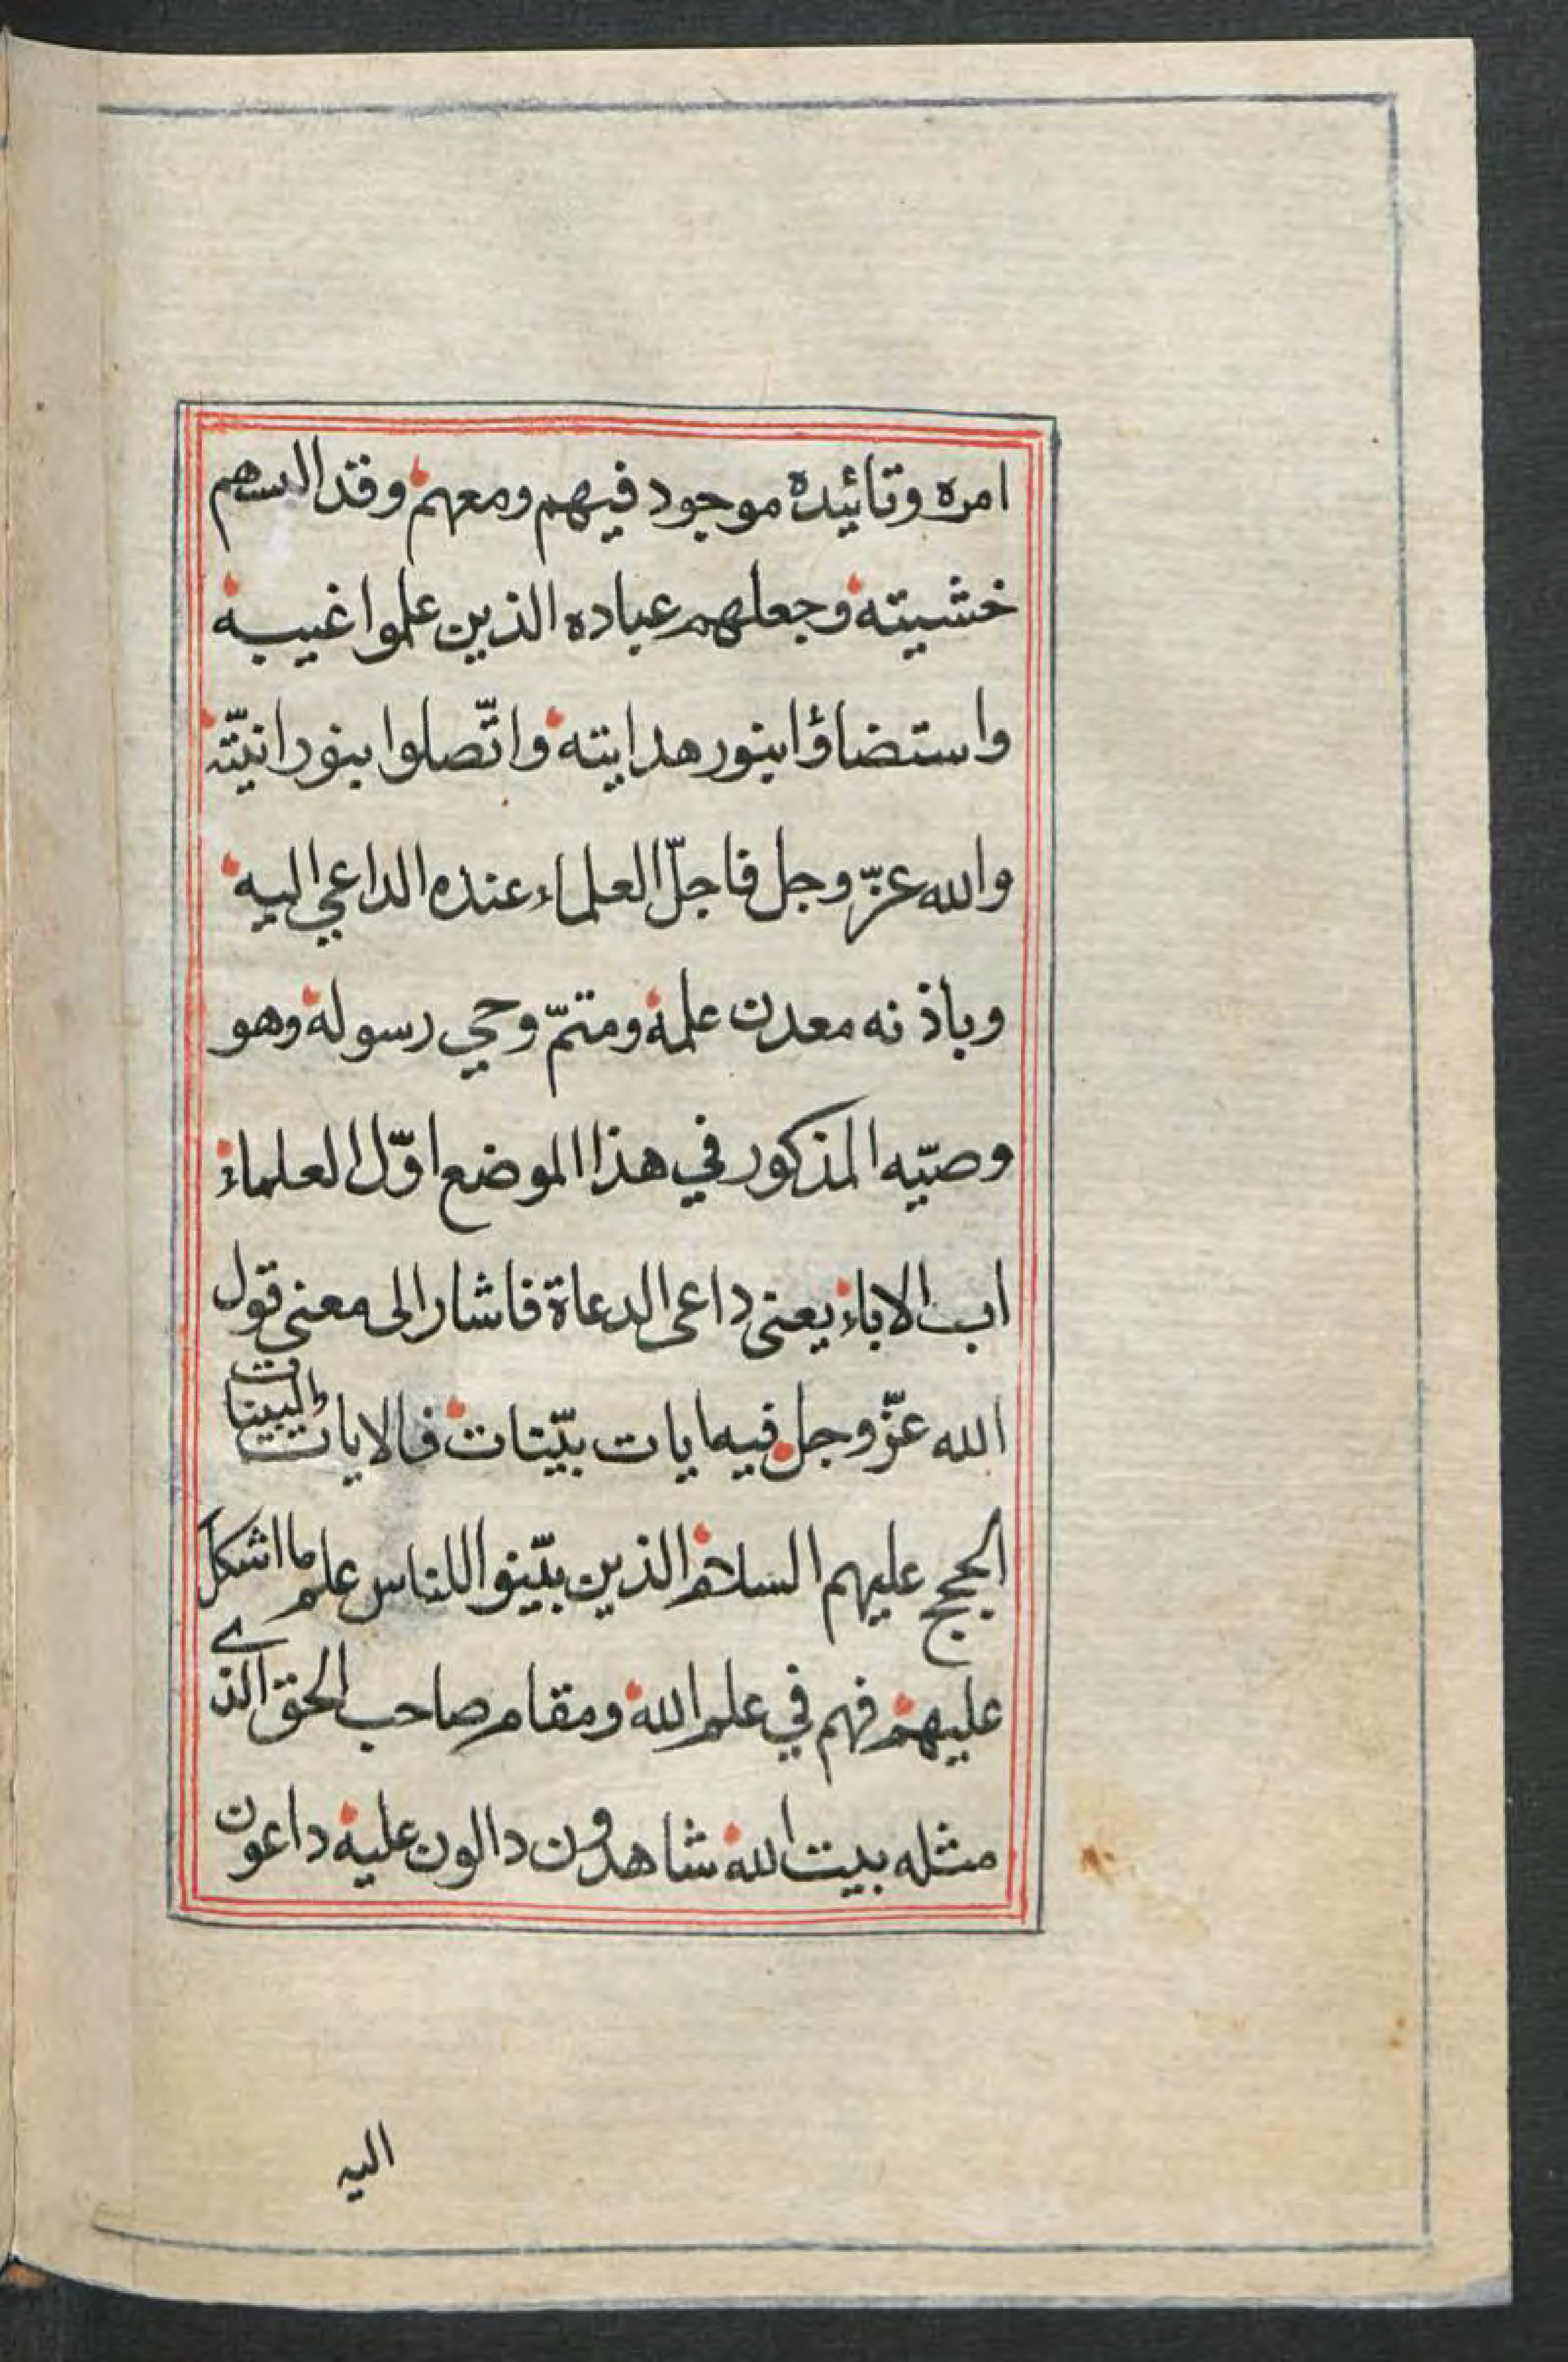 امره وتائيده موجود فيهم ومعهم وقد البسهم
خشيته وجعلهم عباده الذين علموا غيبه
واستضاؤا بنور هدايته واتّصلوا بنورانيّته
والله عزّ وجل فاجلّ العلماء عنده الداعي اليه
وباذنه معدن علمه ومتمّ وحي رسوله وهو
وصيّه المذكور في هذا الموضع اوّل العلماء
اب الاباء يعنى داعى الدعاة فاشار الى معنى قول
الله عزّ وجل فيه ايات بيّنات فالايات البينات
الحجج عليهم السلام الذين بيّنوا للناس علم ما اشكل
عليهم فهم في علم الله ومقام صاحب الحق الذي
مثله بيت الله شاهدون دالون عليه داعون
اليه